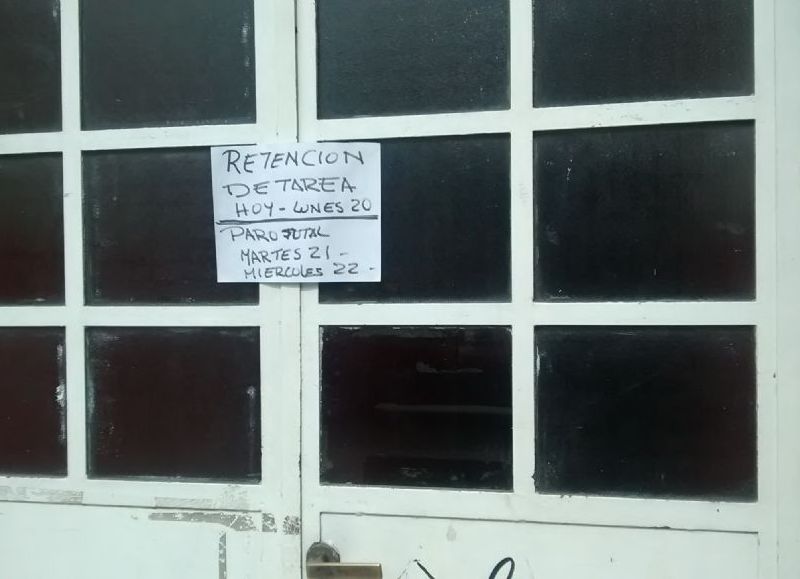 RETENCION
DE TAREA
HOY - LUNES 20
PARO TOTAL
MARTES 21 -
MIERCOLES 22 -